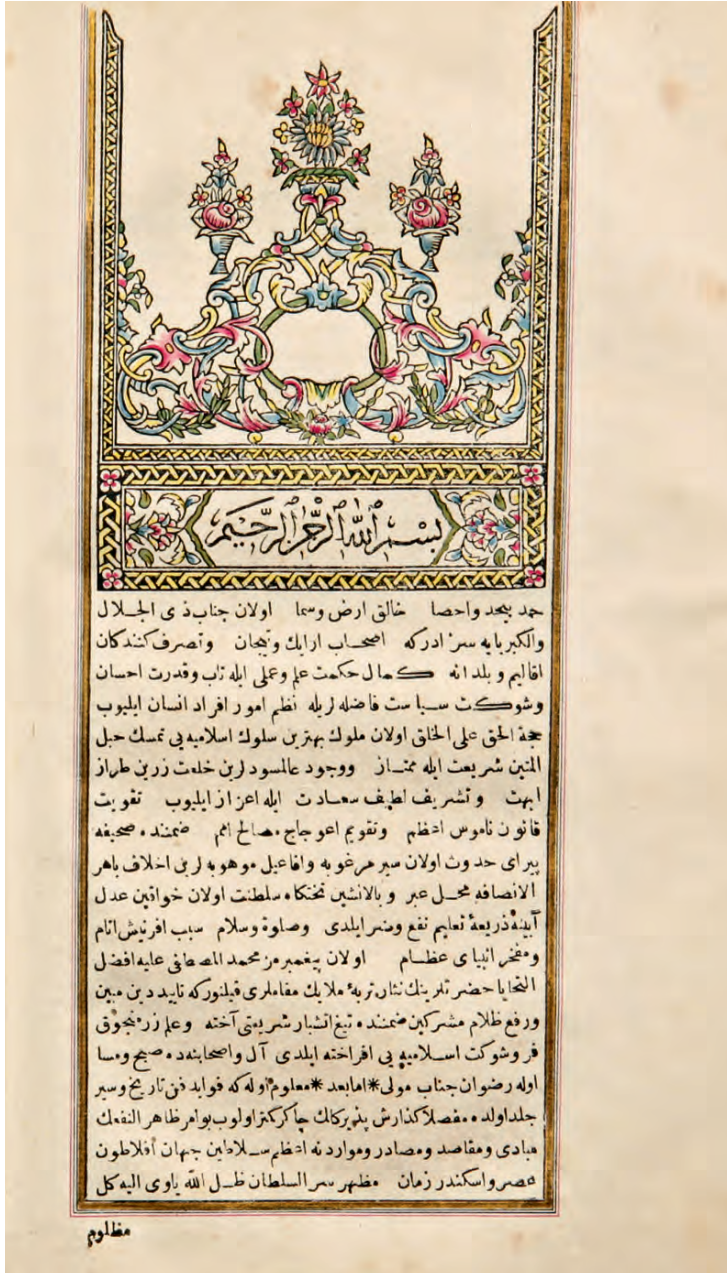 بسم الله الرحمن الرحيم
حمد بيحد واحصا خالق ارض وسما اولان جناب ذى الجلال
والكبريايه سزادركه اصحاب ارايك وتيجان وتصرف كنندكان
اقاليم وبلدانه كمال حكمت علم وعملى ايله تاب وقدرت احسان
وشوكت سياست فاضله لريله نظم امور افراد انسان ايليوب
حجة الحق على الخلق اولان ملوك بهترين سلوك اسلاميه يى تمسك حبل
المتين شريعت ايله ممتاز ووجود عالمسودلرين خلعت زرين طراز
ابهت وتشريف لطيف سعادت ايله اعزاز ايليوب تقويت
قانون ناموس اعظم وتقويم اعوجاج مصالح اهم ضمننده صحيفه
پيراى حدوث اولان سير مرغوبه وافاعيل موهوبه لرين اخلاف باهر
الانصافه محل عبر وبالانشين تختكاه سلطنت اولان خواقين عدل
آيينه ذريعۀ تعليم نفع وضر ايلدى وصلوة وسلام سبب افرينش انام
ومفخر انبياى عظام اولان پيغمبرمز محمد المصطفى عليه افضل
التحايا حضرتلرينك نثار تربۀ ملايك مقاملرى قيلنوركه تاييد دين مبين
ورفع ظلام مشركين ضمننده تيغ اتشبار شريعتى آخته وعلم زرمنجوق
فروشوكت اسلاميه يى افراخته ايلدى آل واصحابنه ده صبح ومسا
اوله رضوان جناب مولى * امابعد * معلوم اوله كه فوايد فن تاريخ وسير
جلد اولده مفصلا كذارش پذير كلك چاكر كمتر اولوب بوامر ظاهر النفعك
مبادى ومقاصد ومصادر ومواردنه اعظم سلاطين جهان افلاطون
عصر واسكندر زمان مظهر سر السلطان ظل الله ياوى اليه كل
مظلوم